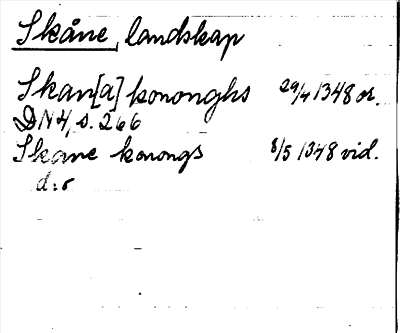 Skåne, landskap
Skan[a] kononghs 29/4 1348 or.
DN 4, s. 266
Skane konongs 8/5 1348 vid.
d:o